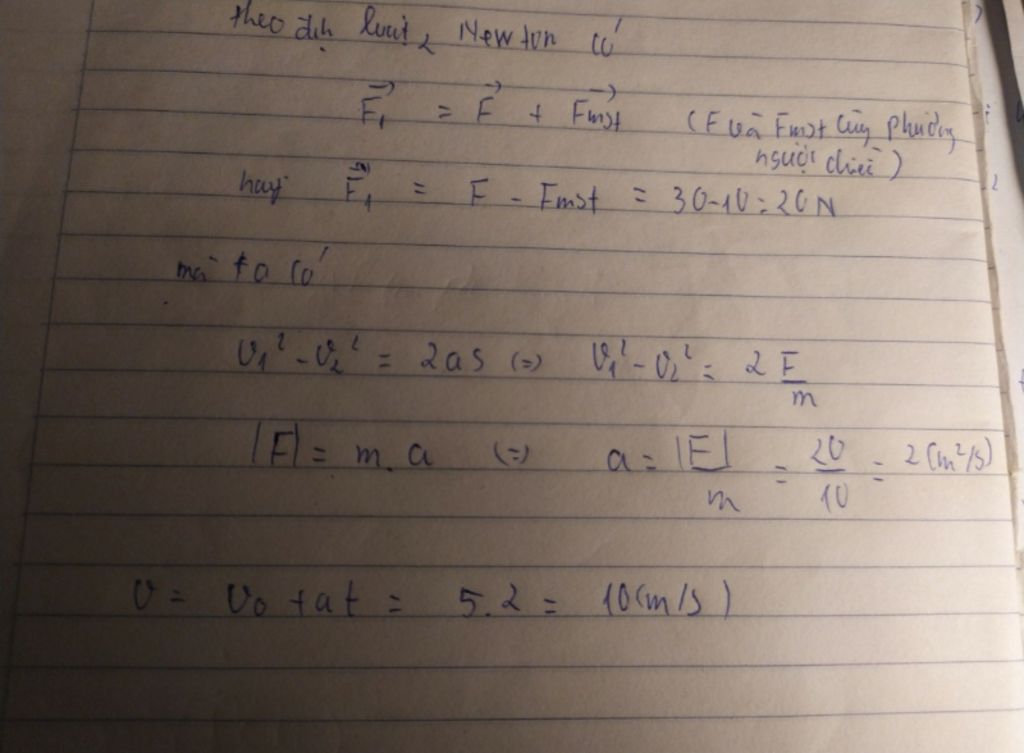 theo địh luật 2 Newton có
F₁ = F + Fmst (F và Fmst cùng phương
ngược chiều)
hay F₁ = F - Fmst = 30-10 = 20N
mà ta có
v₁² - v₂² = 2as (=) v₁² - v₂² = 2 F/m
|F| = m. a (=) a = |F|/m = 20/10 = 2 (m²/s)
v = v₀ + at = 5.2 = 10(m/s)